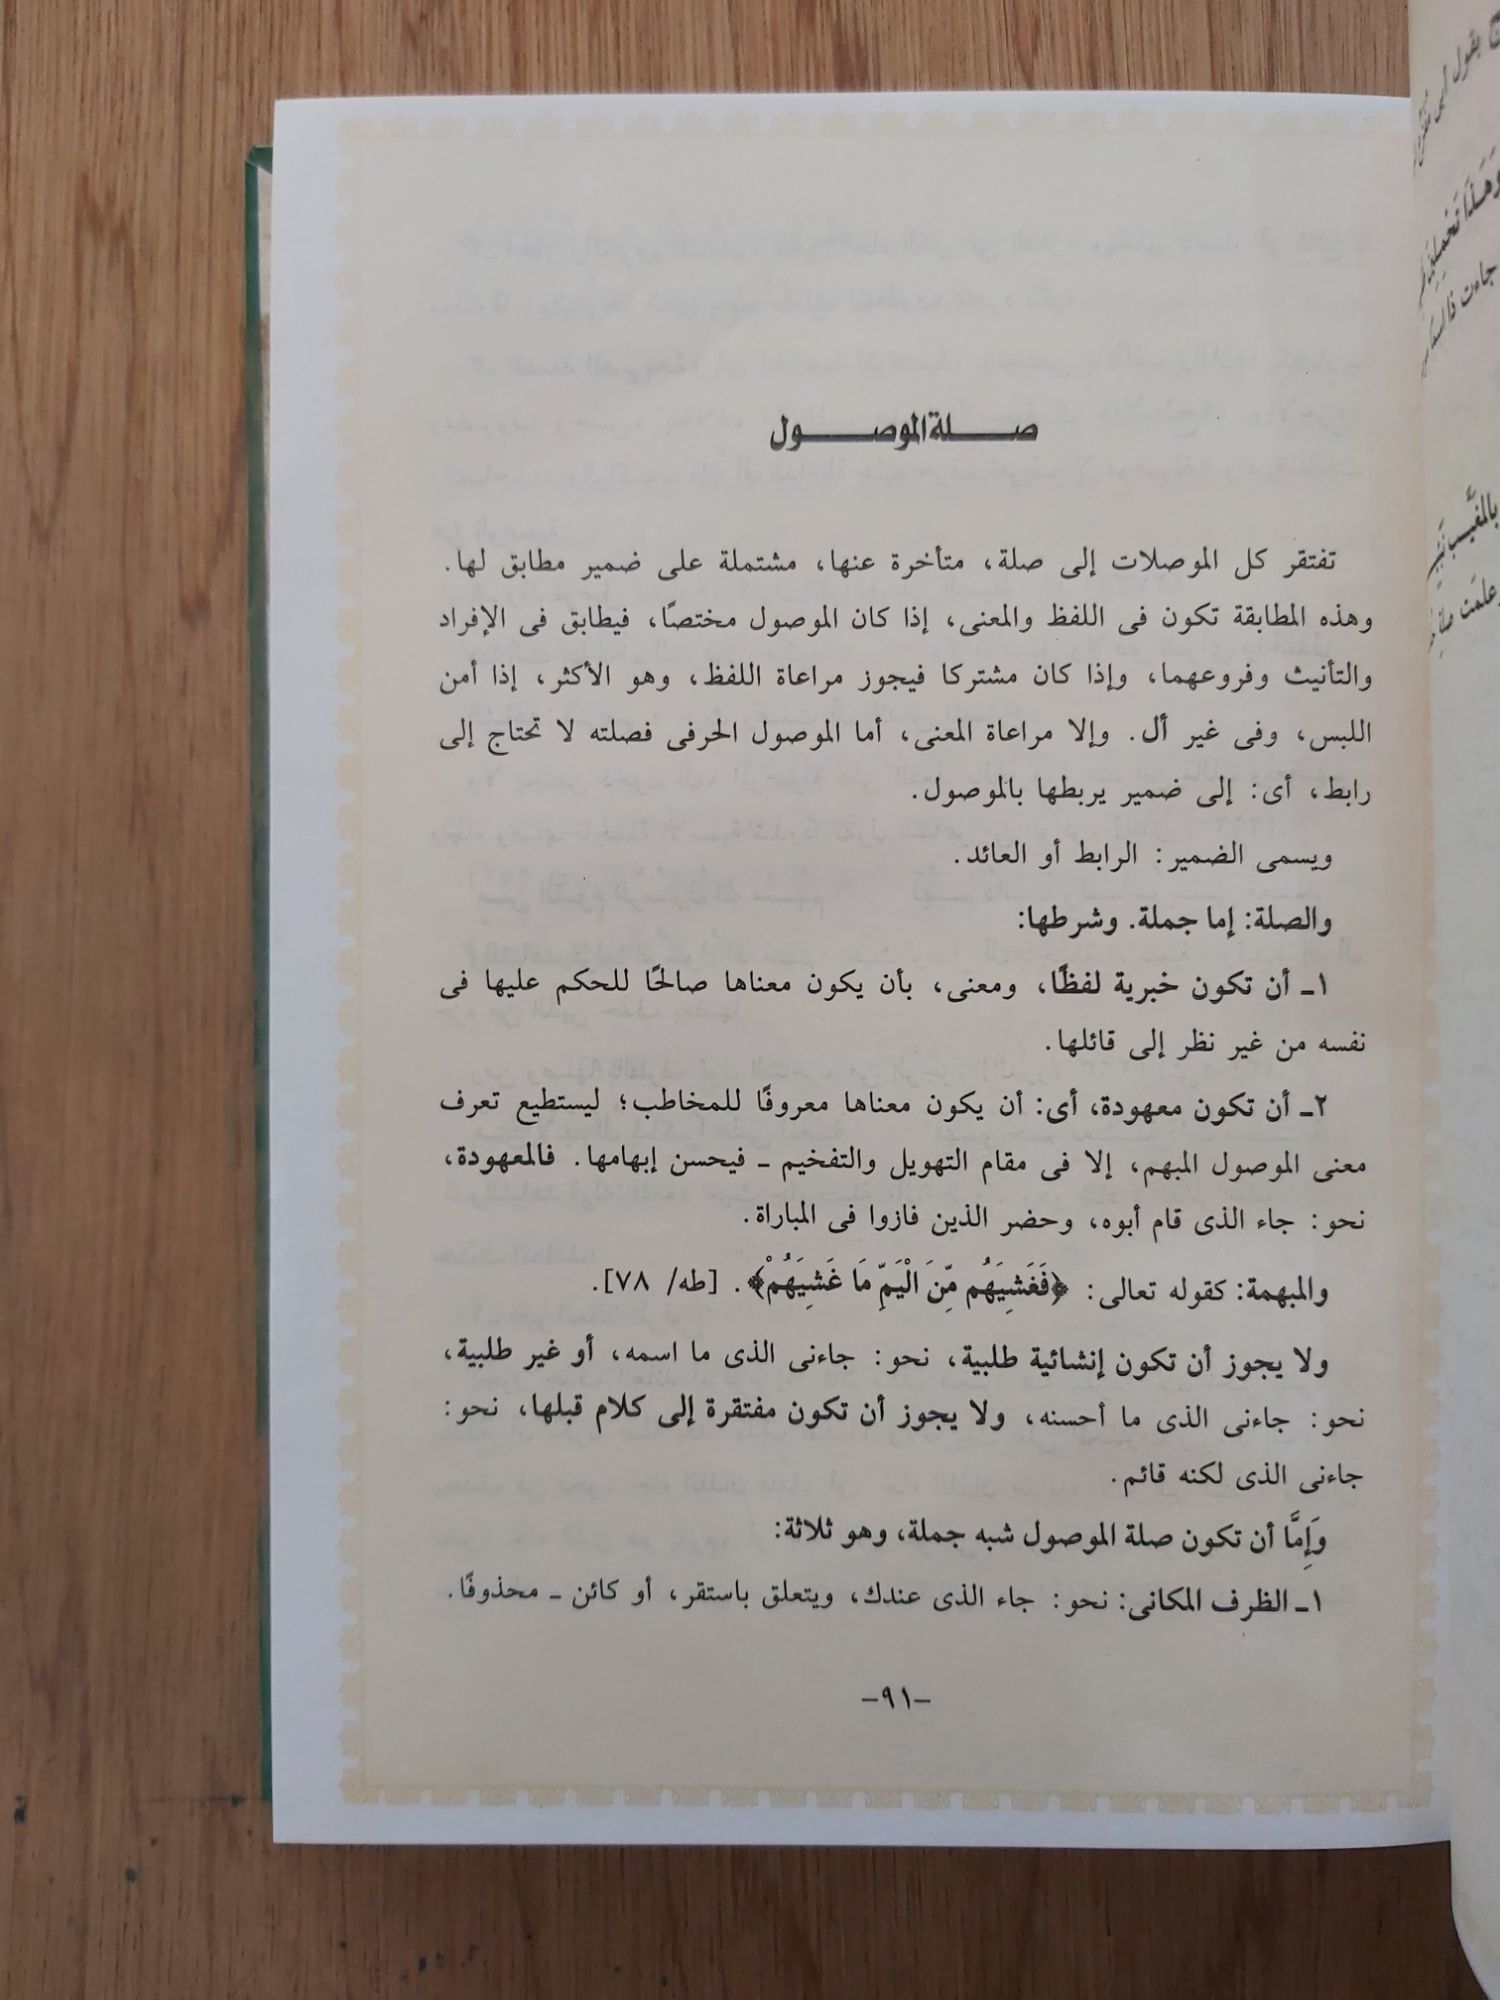 صلة الموصول
تفتقر كل الموصلات إلى صلة، متأخرة عنها، مشتملة على ضمير مطابق لها.
وهذه المطابقة تكون فى اللفظ والمعنى، إذا كان الموصول مختصًا، فيطابق فى الإفراد
والتأنيث وفروعهما، وإذا كان مشتركا فيجوز مراعاة اللفظ، وهو الأكثر، إذا أمن
اللبس، وفى غير أل. وإلا مراعاة المعنى، أما الموصول الحرفى فصلته لا تحتاج إلى
رابط، أى: إلى ضمير يربطها بالموصول.
ويسمى الضمير: الرابط أو العائد.
والصلة: إما جملة. وشرطها:
١ـ أن تكون خبرية لفظًا، ومعنى، بأن يكون معناها صالحًا للحكم عليها فى
نفسه من غير نظر إلى قائلها.
٢ـ أن تكون معهودة، أى: أن يكون معناها معروفًا للمخاطب؛ ليستطيع تعرف
معنى الموصول المبهم، إلا فى مقام التهويل والتفخيم ـ فيحسن إبهامها. فالمعهودة،
نحو: جاء الذى قام أبوه، وحضر الذين فازوا فى المباراة.
والمبهمة: كقوله تعالى: ﴿فَغَشِيَهُم مِّنَ الْيَمِّ مَا غَشِيَهُمْ﴾. [طه/ ٧٨].
ولا يجوز أن تكون إنشائية طلبية، نحو: جاءنى الذى ما اسمه، أو غير طلبية،
نحو: جاءنى الذى ما أحسنه، ولا يجوز أن تكون مفتقرة إلى كلام قبلها، نحو:
جاءنى الذى لكنه قائم.
وَإِمَّا أن تكون صلة الموصول شبه جملة، وهو ثلاثة:
١ـ الظرف المكانى: نحو: جاء الذى عندك، ويتعلق باستقر، أو كائن ـ محذوفًا.
–٩١–